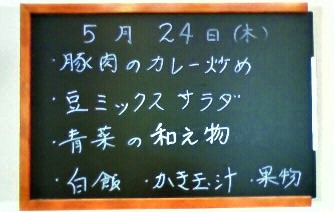 5月24日(木)
・豚肉のカレー炒め
・豆ミックスサラダ
・青菜の和え物
・白飯 ・かき玉汁 ・果物